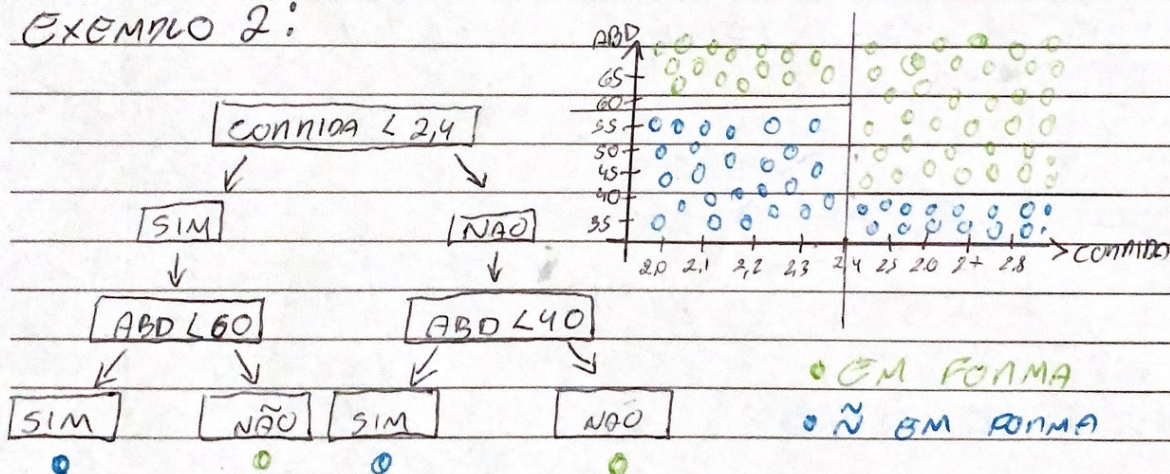 EXEMPLO 2:
CORRIDA < 2,4
SIM
NAO
ABD < 60
ABD < 40
SIM
NÃO
SIM
NAO
ABD
65
60
55
50
45
40
35
2,0 2,1 2,2 2,3 2,4 2,5 2,6 2,7 2,8
CORRIDA
EM FORMA
Ñ EM FORMA